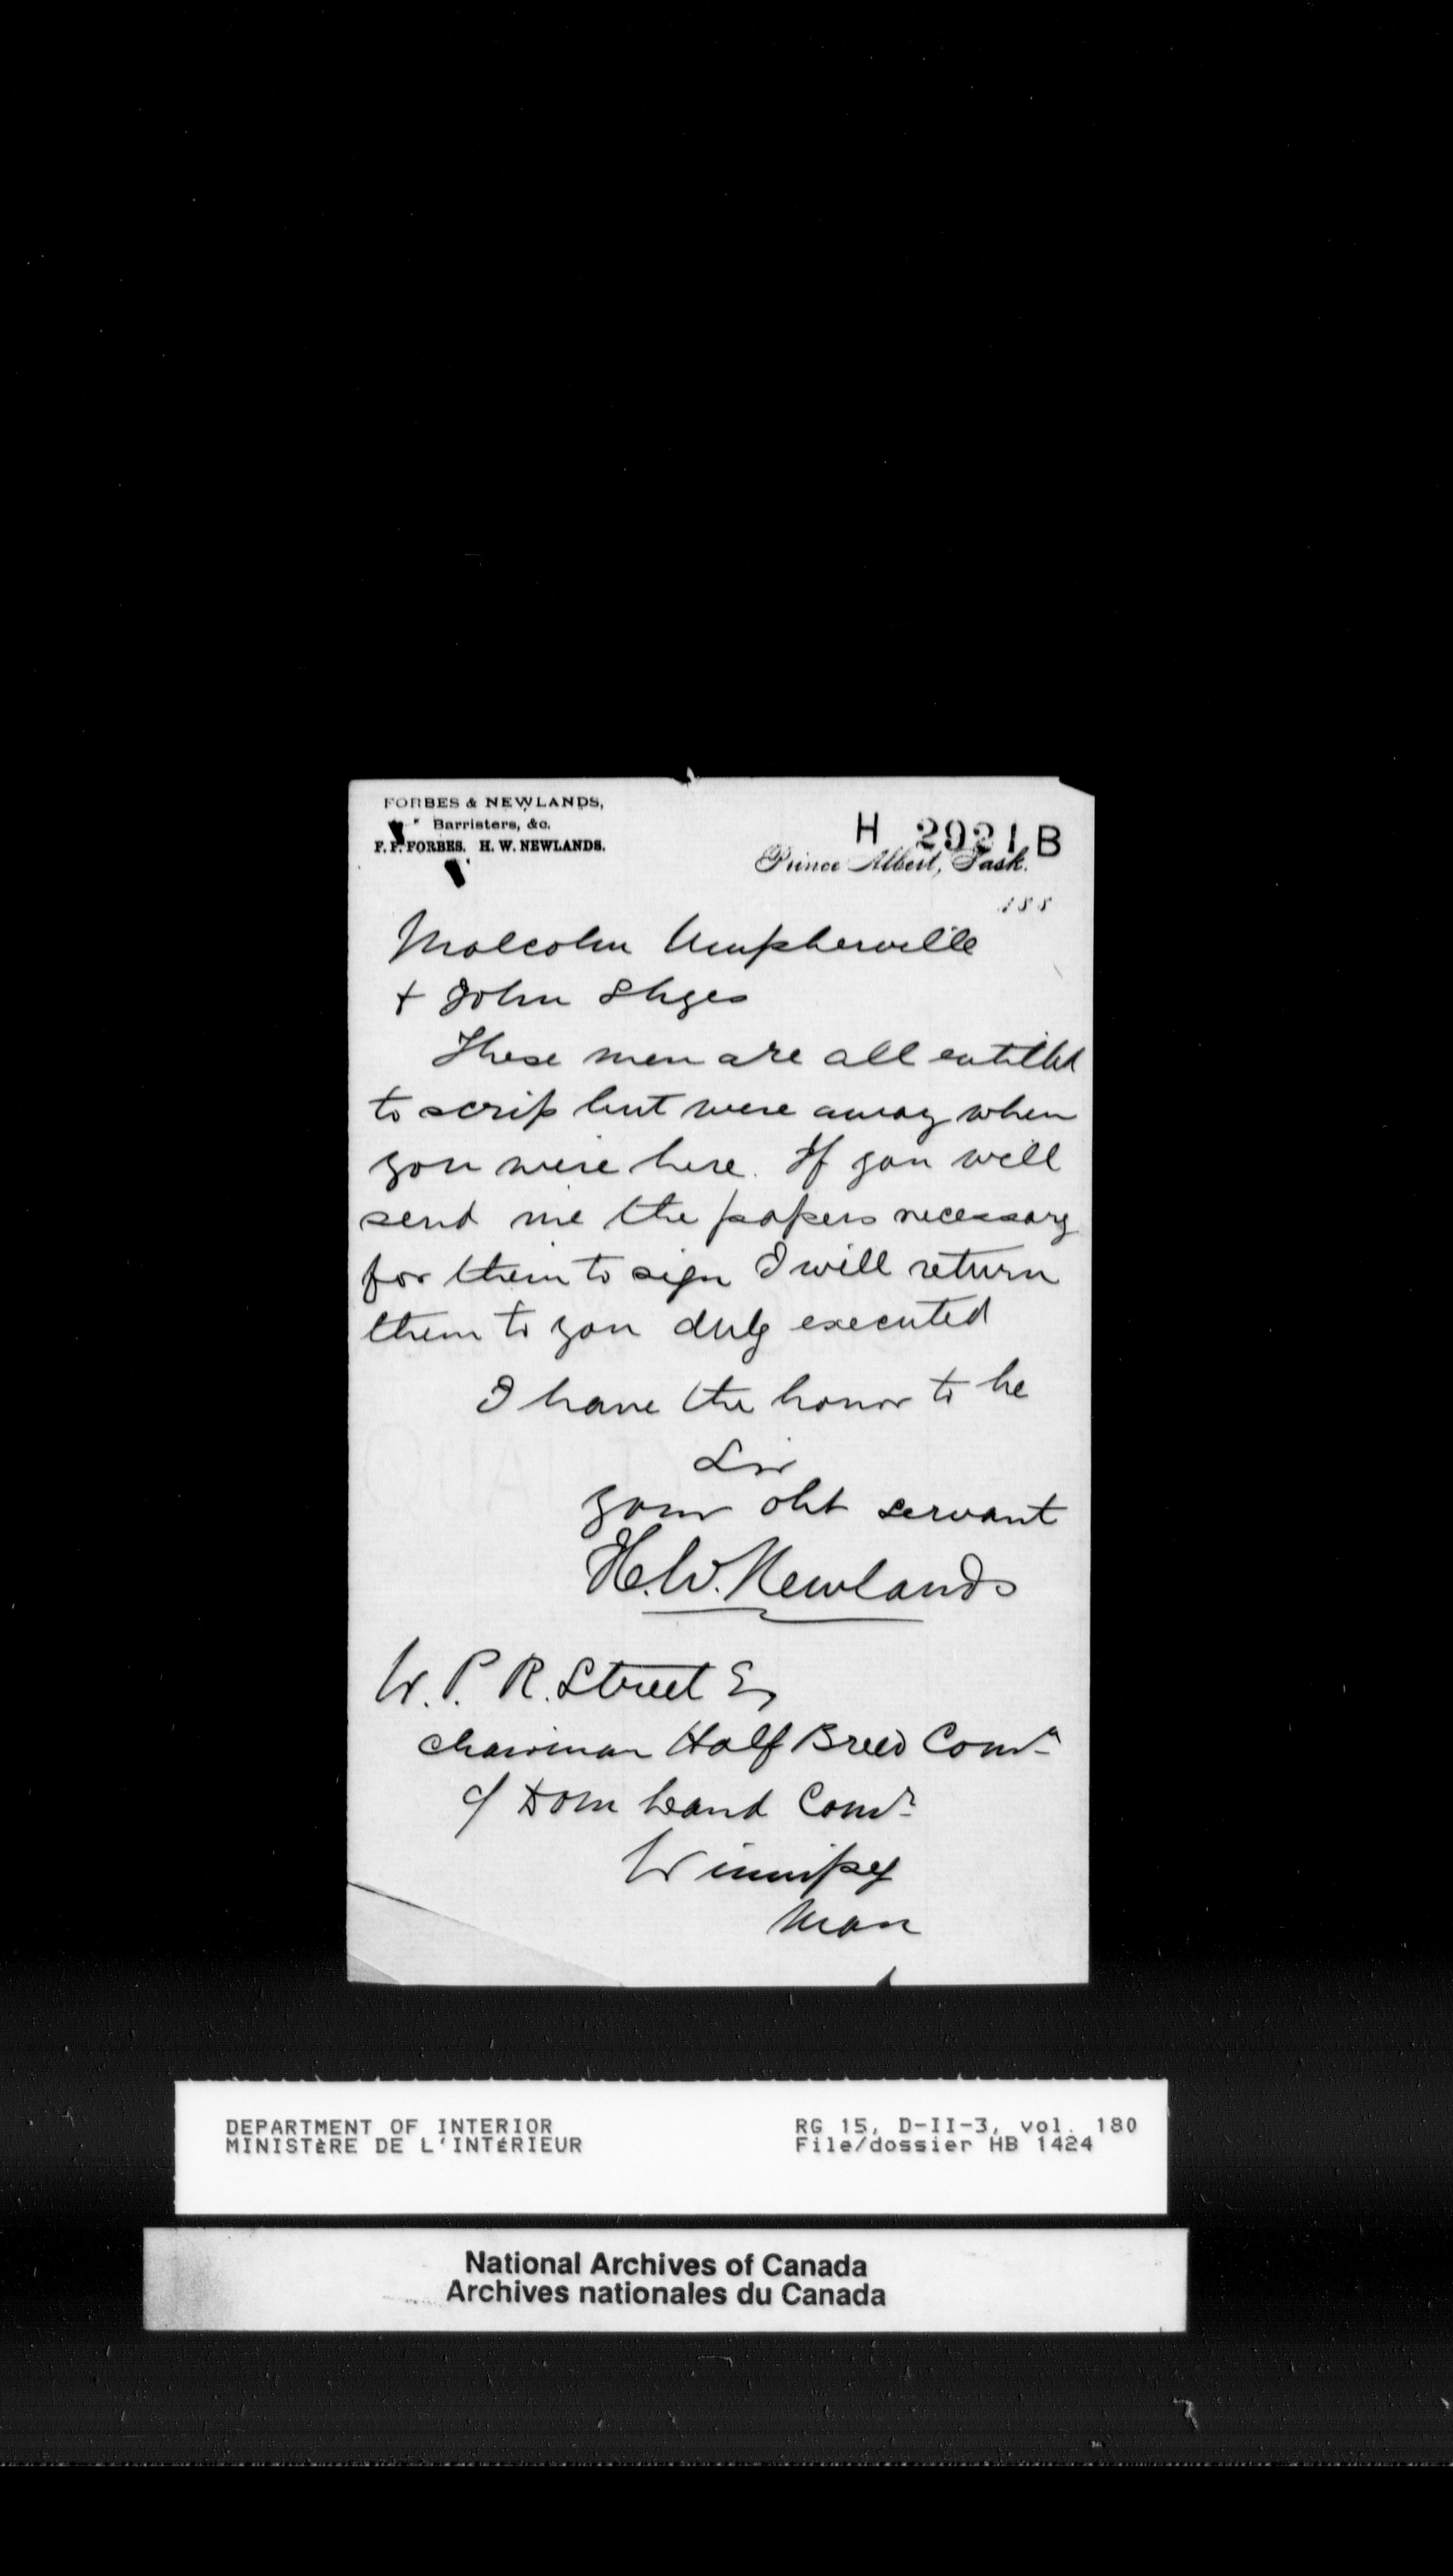 FORBES & NEWLANDS,
Barristers, &c.
F. F. FORBES. H. W. NEWLANDS.
H 2921 B
Prince Albert, Sask.
188
Malcolm Umpherville
+ John Slyes
These men are all entitled
to scrip but were away when
you were here. If you will
send me the papers necessary
for them to sign I will return
them to you duly executed
I have the honor to be
Sir
your obt servant
H. W. Newlands
W. P. R. Street Eq
Chairman Half Breed Comn
c/ Dom Land Comr
Winnipeg
Man
DEPARTMENT OF INTERIOR
MINISTÈRE DE L'INTÉRIEUR
RG 15, D-II-3, vol. 180
File/dossier HB 1424
National Archives of Canada
Archives nationales du Canada